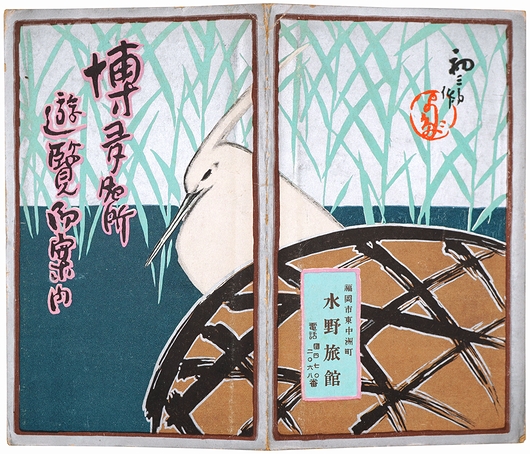 初三郎作
福岡市東中洲町
水野旅館
電話
二〇六八番
博多名所
遊覧御案内